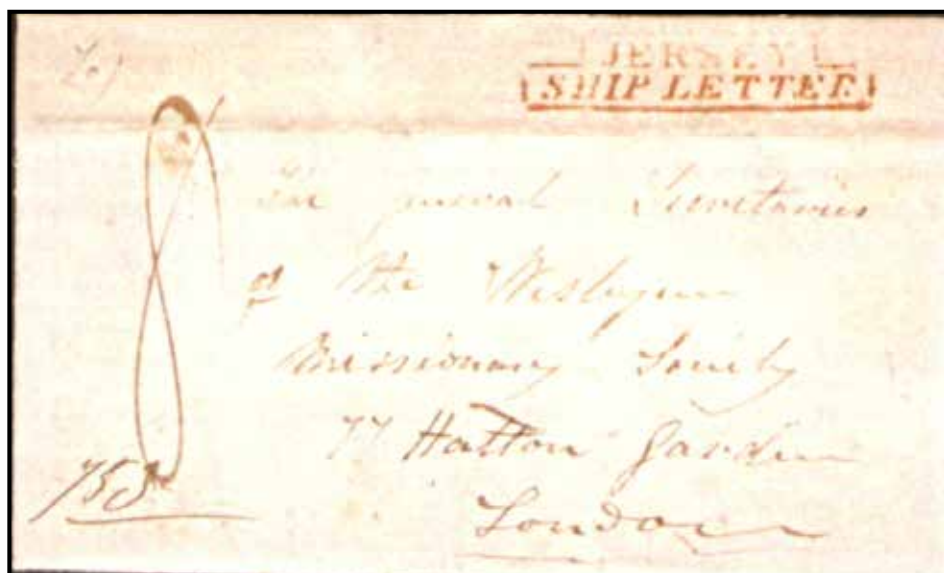 JERSEY
SHIP LETTER
8
The general Secretaries
of the Wesleyan
Missionary Society
77 Hatton Garden
London